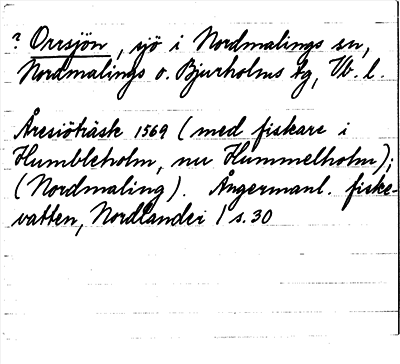 ? Orrsjön, sjö i Nordmalings sn,
Nordmalings o. Bjurholms tg, Vb. l.
Åresiöträsk 1569 (med fiskare i
Humbleholm, nu Hummelholm);
(Nordmaling). Ångermanl. fiske-
vatten, Nordlander 1 s. 30